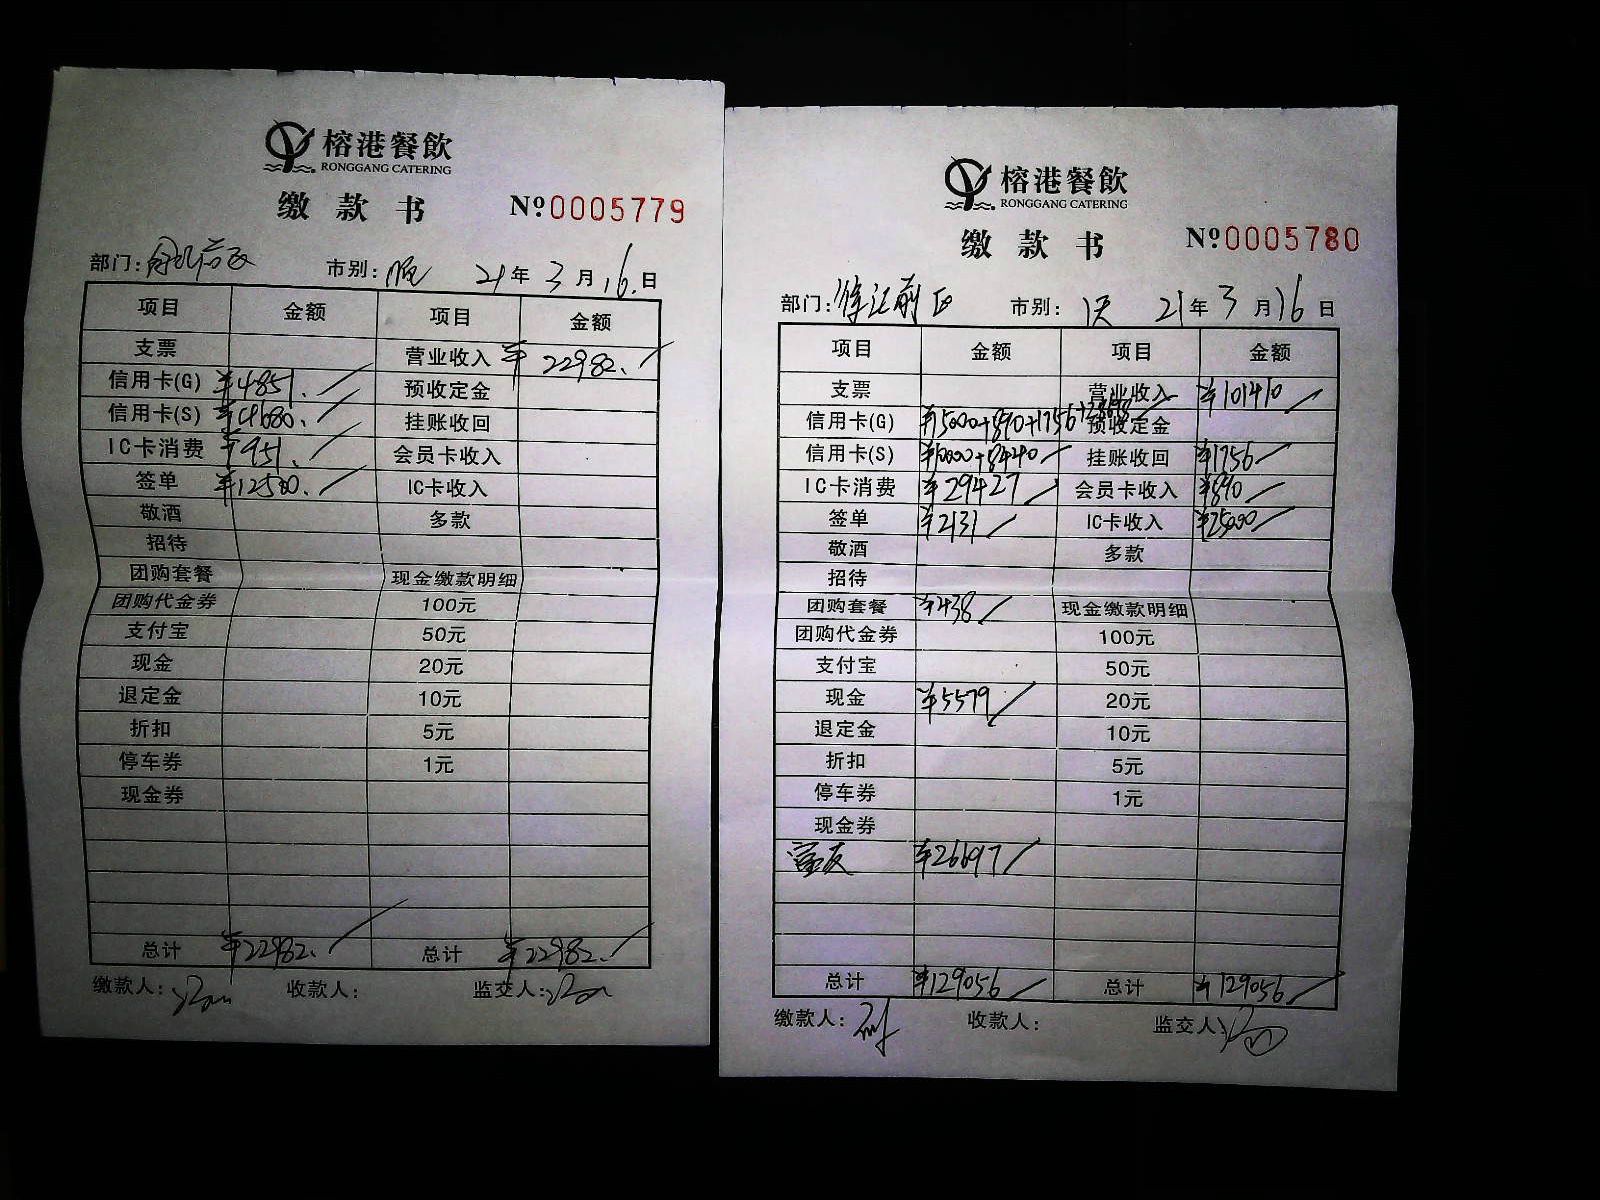 榕港餐飲
RONGGANG CATERING
缴款书 №0005779
部门: 市别: 21年3月16日
项目 金额 项目 金额
支票 营业收入 ¥22982.
信用卡(G) ¥4851. 预收定金
信用卡(S) ¥4680. 挂账收回
IC卡消费 ¥951. 会员卡收入
签单 ¥12500. IC卡收入
敬酒 多款
招待
团购套餐 现金缴款明细
团购代金券 100元
支付宝 50元
现金 20元
退定金 10元
折扣 5元
停车券 1元
现金券
总计 ¥22982. 总计 ¥22982.
缴款人: 收款人: 监交人:
榕港餐飲
RONGGANG CATERING
缴款书 №0005780
部门:徐汇前区 市别: 21年3月16日
项目 金额 项目 金额
支票 营业收入 ¥101410
信用卡(G) ¥15000+890+1756+28698 预收定金
信用卡(S) ¥10000+8440 挂账收回 ¥1756
IC卡消费 ¥29427 会员卡收入 ¥890
签单 ¥2131 IC卡收入 ¥25000
敬酒 多款
招待
团购套餐 ¥438 现金缴款明细
团购代金券 100元
支付宝 50元
现金 ¥5579 20元
退定金 10元
折扣 5元
停车券 1元
现金券
富友 ¥26697
总计 ¥129056 总计 ¥129056
缴款人: 收款人: 监交人: